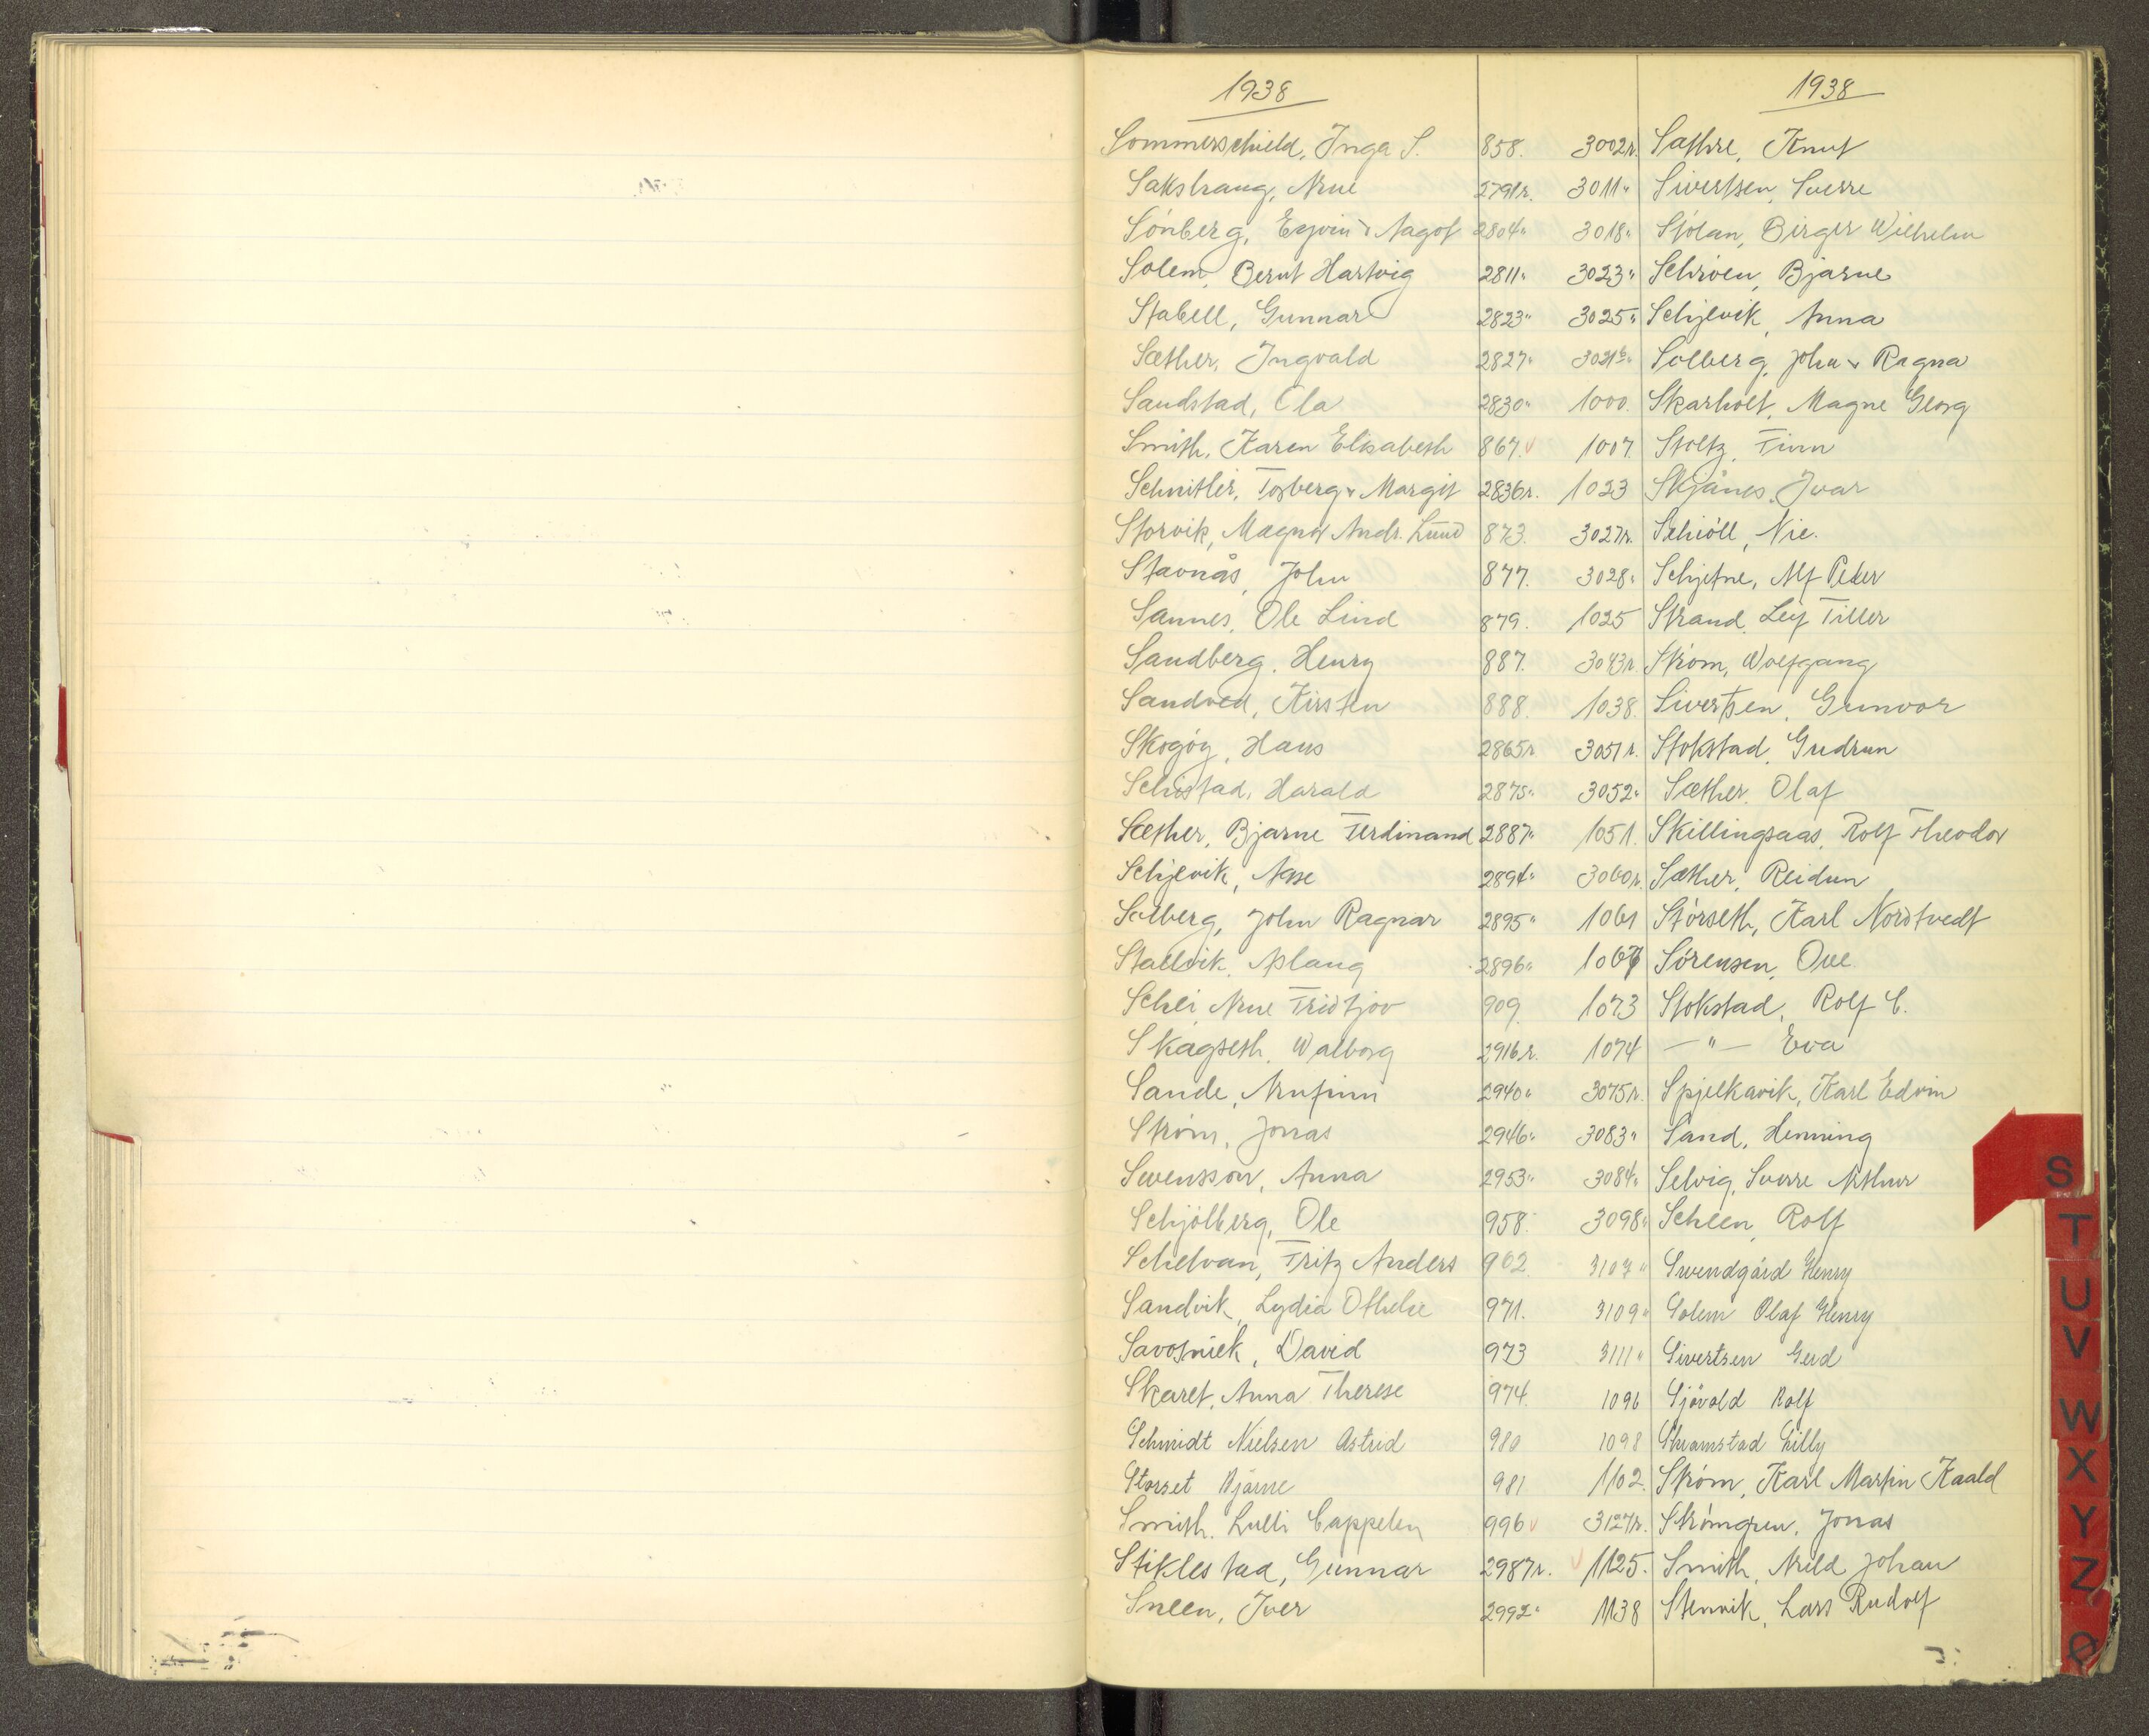 1938 1938
Sommerschield, Inga S. 858. 3002r. Sathre, Knut
Sakshaug, Arne 2791r. 3011" Sivertsen, Sverre
Sönberg, Egvin & Aagot 2804" 3018" Stölan, Birger Wilhelm
Solem, Bernt Hartvig 2811" 3023" Schröen, Bjarne
Stabell, Gunnar 2823" 3025" Schjevik, Anna
Sæther, Ingvald 2827" Solberg, John & Ragna
Sandstad, Ola 2830" 1000. Skarholt, Magne Georg
Smith, Karen Elisabeth 867. 1007. Stoltz, Finn
Schnitler, Torberg & Margit 2836r. 1023 Skjånes, Ivar
Storvik, Magnor Andr. Lund 873. 3027r. Schiöll, Nic.
Stavnås, John 877. 3028" Schjetne, Alf Peter
Sannes, Ole Lind 879. 1025 Strand, Leif Tiller
Sandberg, Henry 887. 3043r. Ström, Wolfgang
Sandved, Kirsten 888. 1038. Sivertsen, Gunvor
Skogöy, Hans 2865r 3051r. Stokstad, Gudrun
Schistad, Harald 2875" 3052" Sæther, Olaf
Sæther, Bjarne Ferdinand 2887" 1051. Skillingsaas, Rolf Theodor
Schjevik, Aase 2894" 3060r. Sæther, Reidun
Solberg, John Ragnar 2895" 1061 Störseth, Karl Nordtvedt
Stallvik, Aslaug 2896" Sörensen, Ove
Schei, Arne Fridtjov 909. 1073 Stokstad, Rolf C.
Skagseth, Walborg 2916r. 1074 — " — Eva
Sande, Arnfinn 2940" 3075r. Spjelkavik, Karl Edvin
Ström, Jonas 2946" 3083" Sand, Henning
Svensson, Anna 2953" 3084" Selvig, Sverre Arthur
Schjölberg, Ole 958. 3098" Scheen, Rolf
Schelvan, Fritz Anders 962 3107" Svendgård Henry
Sandvik, Lydia Othelie 971. 3109" Solem Olaf Henry
Savosnick, David 973 3111" Sivertsen Gerd
Skaret, Anna Therese 974. 1096 Sjövold Rolf
Schmidt Nielsen Astrid 980 1098 Skramstad Lilly
Storset Bjarne 981 1102. Ström, Karl Martin Kaald
Smith, Lulli Cappelen 996 3127r. Strömgren, Jonas
Stiklestad, Gunnar 2987r. 1125. Smith, Arild Johan
Sneen, Iver 2992" 1138 Stenvik, Lars Rudolf
S
T
U
V
W
X
Y
Z
Ø